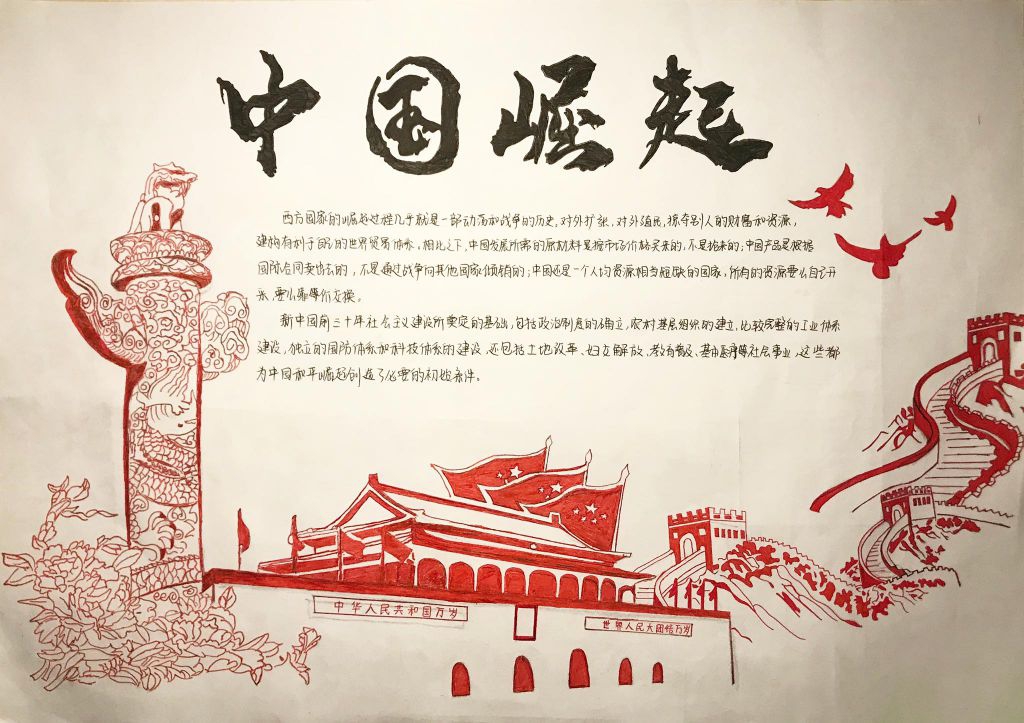 中国崛起
西方国家的崛起过程几乎就是一部动荡和战争的历史，对外扩张，对外殖民，掠夺别人的财富和资源，
建构有利于自己的世界贸易体系，相比之下，中国发展所需的原材料是按市场价格买来的，不是抢来的；中国产品是根据
国际合同卖出去的，不是通过战争向其他国家倾销的；中国还是一个人均资源相当短缺的国家，所有的资源要么自己开
采，要么靠等价交换。
新中国前三十年社会主义建设所奠定的基础，包括政治制度的确立，农村基层组织的建立、比较完整的工业体系
建设，独立的国防体系和科技体系的建设，还包括土地改革、妇女解放、教育普及、基本医疗等社会事业，这些都
为中国和平崛起创造了必要的初始条件。
中华人民共和国万岁
世界人民大团结万岁